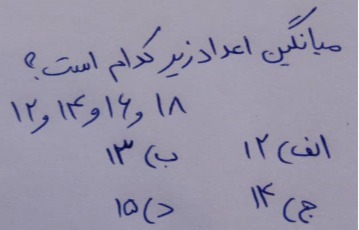 میانگین اعداد زیر کدام است؟
۱۸ و ۱۶ و ۱۴ و ۱۲
الف) ۱۲ ب) ۱۳
ج) ۱۴ د) ۱۵